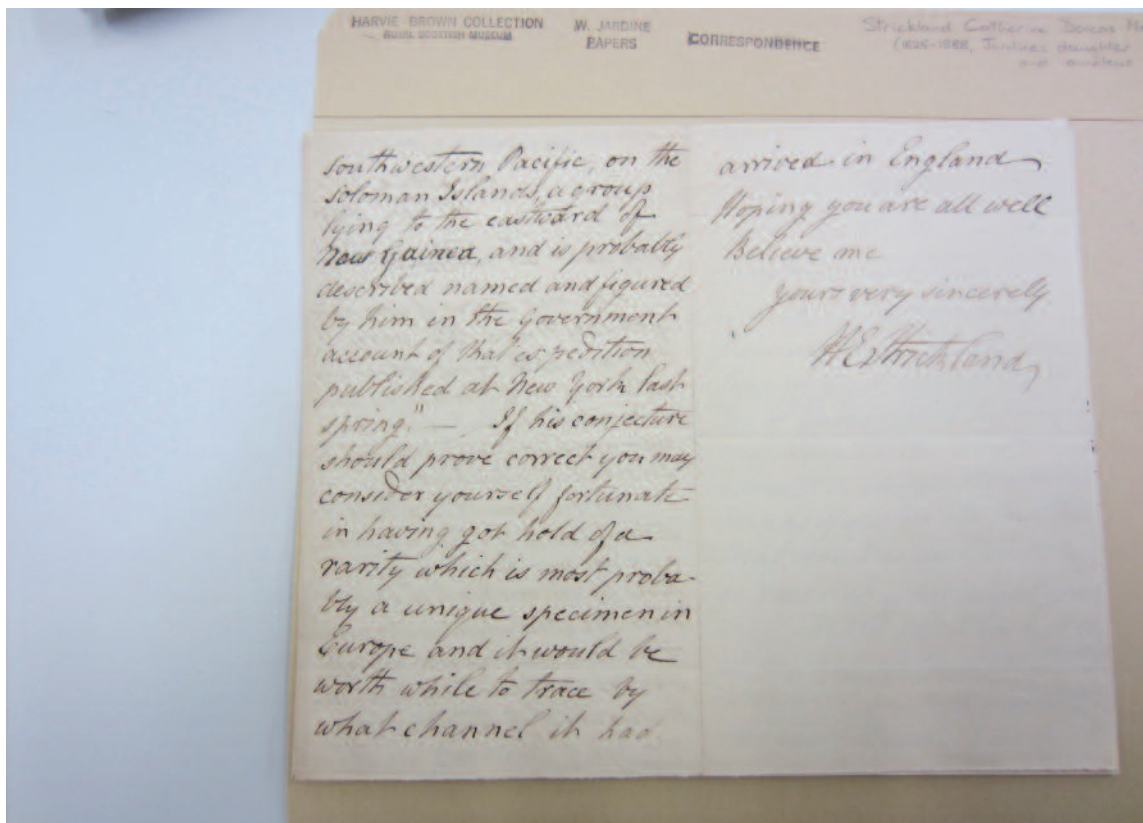 HARVIE BROWN COLLECTION
ROYAL SCOTTISH MUSEUM
W. JARDINE
PAPERS
CORRESPONDENCE
Strickland Catherine Dorcas
(1825-1888, Jardine's daughter
and amateur
southwestern Pacific, on the
Soloman Islands, a group
lying to the eastward of
New Guinea, and is probably
described named and figured
by him in the Government
account of that expedition
published at New York last
spring." — If his conjecture
should prove correct you may
consider yourself fortunate
in having got hold of a
rarity which is most proba-
bly a unique specimen in
Europe and it would be
worth while to trace by
what channel it had
arrived in England
Hoping you are all well
Believe me
yours very sincerely
H E Strickland